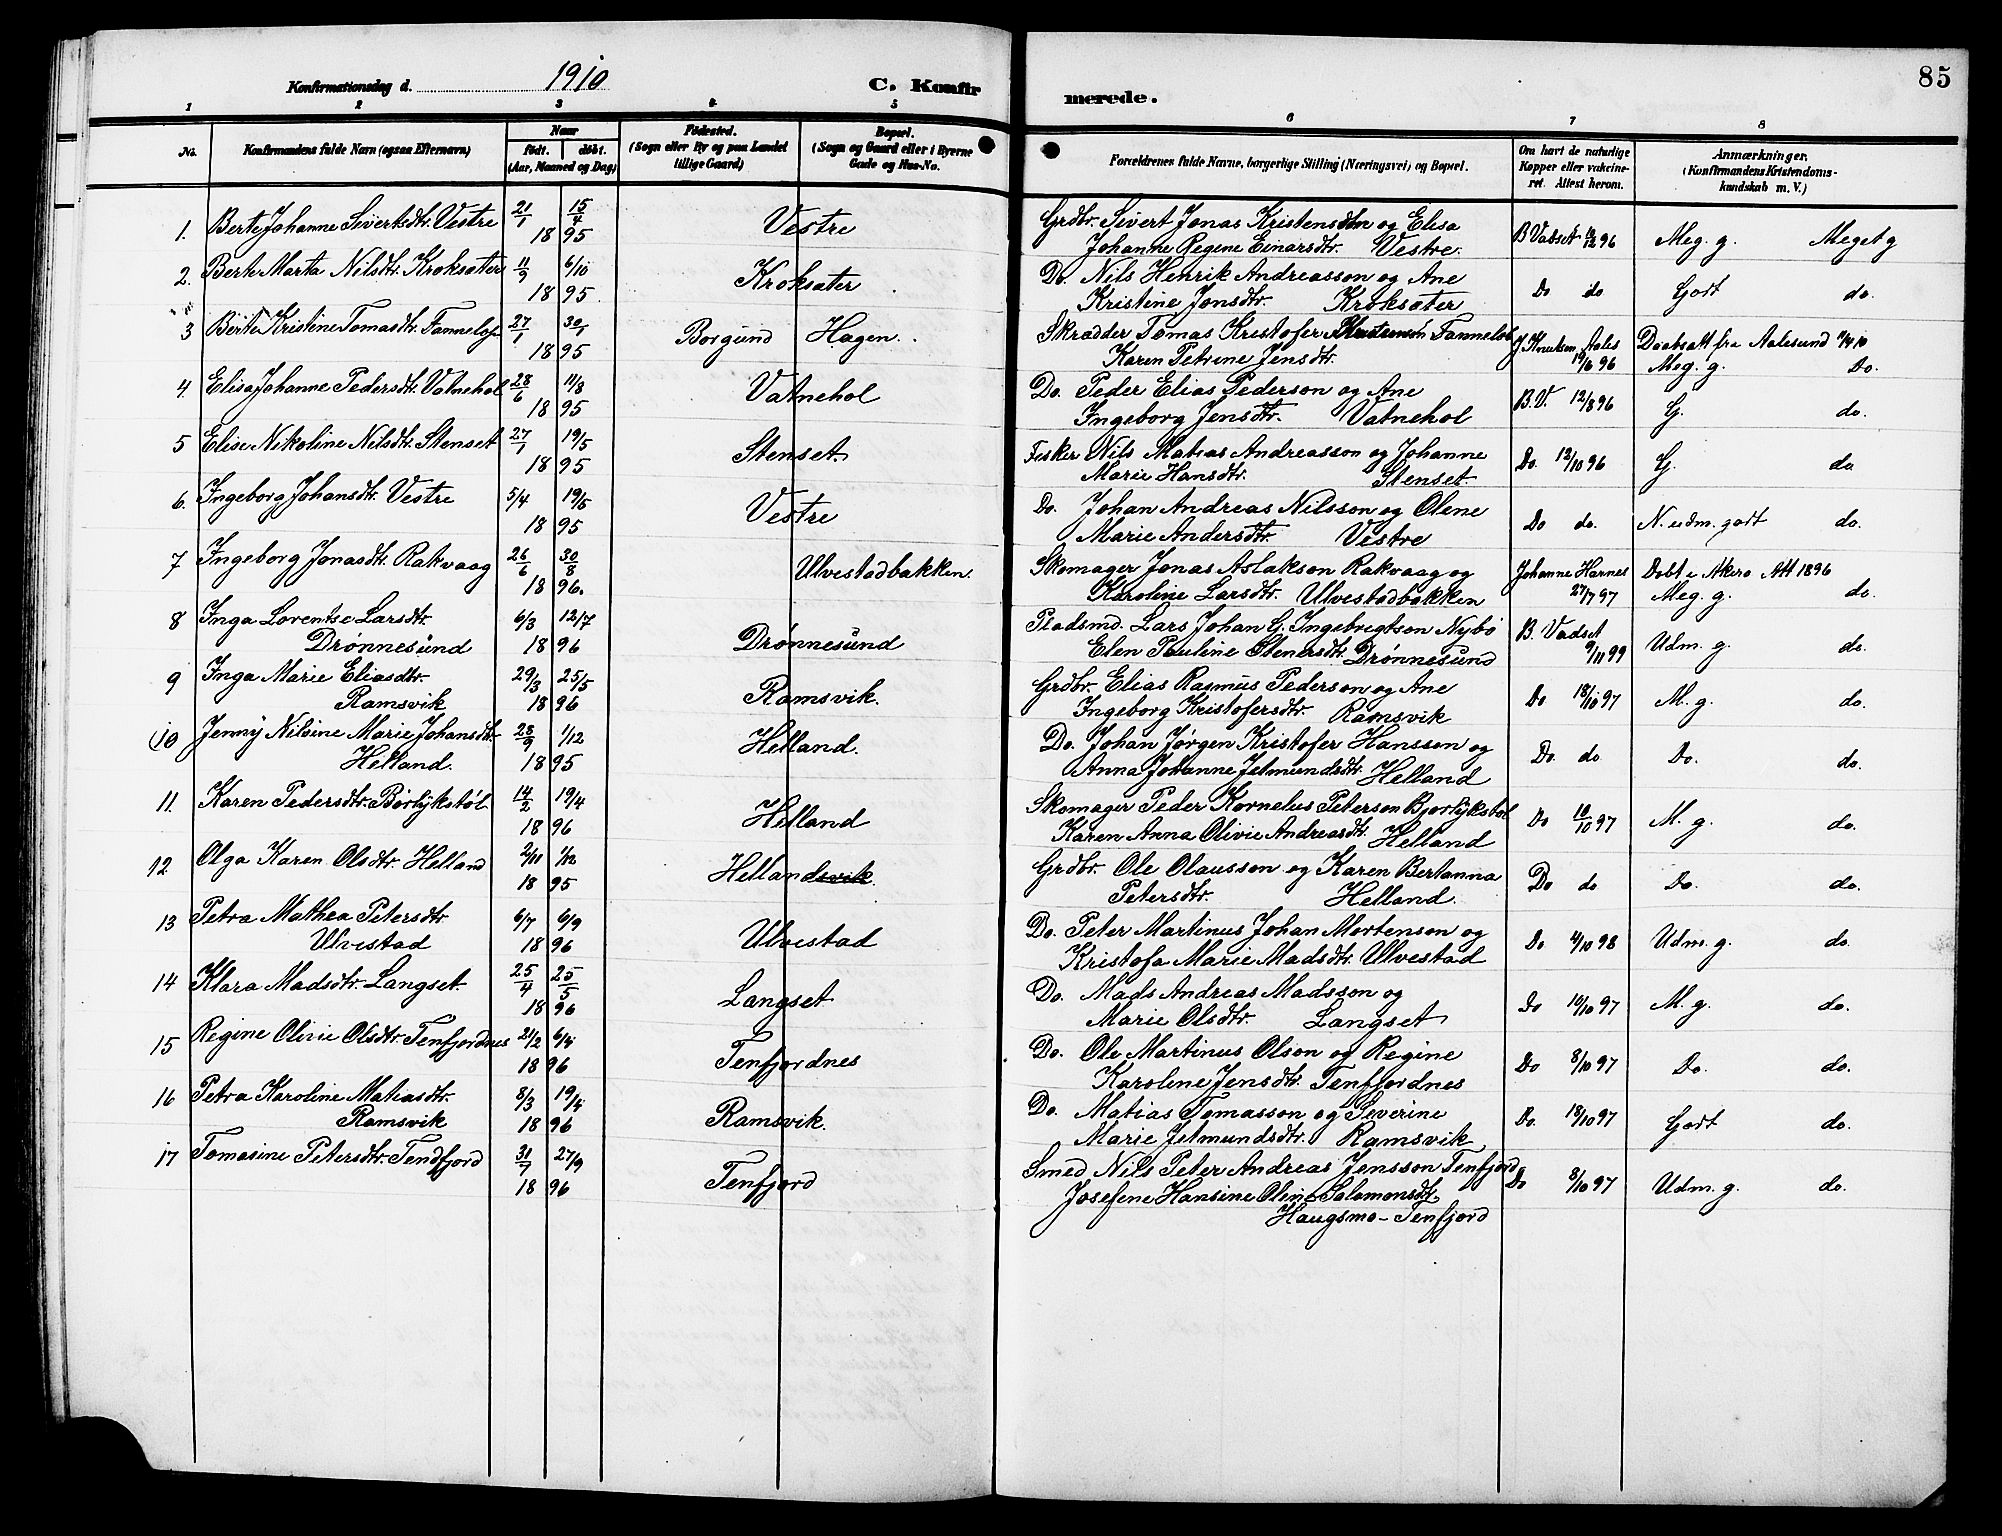 85
Konfirmationsdag d. 1910 C. Konfirmerede.
1 2 3 4 5 6 7 8
No. Konfirmandens fulde Navn (ogsaa Efternavn) Naar født. døbt. (Aar, Maaned og Dag) Fødested. (Sogn eller By og paa Landet tillige Gaard) Bopæl. (Sogn og Gaard eller i Byerne Gade og Hus-No. Forældrenes fulde Navne, borgerlige Stilling (Næringsvei) og Bopæl. Om havt de naturlige Kopper eller vakcineret. Attest herom. Anmærkninger. (Konfirmandens Kristendomskundskab m. V.)
1. Berte Johanne Sivertsdtr. Vestre 21/1 15/4 Vestre Grdbr. Sivert Jonas Kristensen og Elisa B Vatset 12/12 96 Meg. g. Meget g
18 95 Johanne Regine Einarsdtr. Vestre.
2. Berte Marta Nilsdtr. Kroksæter 11/9 6/10 Kroksæter Do. Nils Henrik Andreasson og Ane Do do Godt do.
18 95. Kristine Jonsdtr. Kroksæter
3 Berte Kristine Tomasdtr. Fannelop 27/1 30/1 Borgund Hagen. Skrædder Tomas Kristofer Fannelob J. Knutsen Aales Daabsatt fra Aalesund 11/4 10
18 95 Karen Petrine Jensdtr. 19/6 96 Meg. g. Do.
4. Elisa Johanne Pedersdtr. Vatnehol 28/6 11/8 Vatnehol Do. Peder Elias Pederson og Ane B.V. 12/8 96 G. do.
18 95 Ingeborg Jensdtr. Vatnehol
5 Elise Nikoline Nilsdtr. Stenset 27/1 19/5 Stenset. Fisker Nils Matias Andreasson og Johanne Do. 12/10 96 G. do
18 95 Marie Hansdtr. Stenset
6. Ingeborg Johansdtr. Vestre 5/4 19/5 Vestre Do. Johan Andreas Nilsson og Olene Do do. N. udm. godt do.
18 95 Marie Andersdtr. Vestre
7 Ingeborg Jonasdtr. Rakvaag 26/6 30/8 Ulvestadbakken. Skomager Jonas Aslakson Rakvaag og Johanne Harnes Døbt i Akerø Att 1896
18 96. Karoline Larsdtr. Ulvestadbakken 27/7 97 Meg. g. do.
8 Inga Lorentse Larsdtr. 6/3 12/7 Pladsmd. Lars Johan G. Ingebrigtson Nybø B. Vadset
Drønnesund 18 96 Drønnesund Elen Pauline Stenersdtr. Drønnesund 9/11 99 Udm. g. do.
9 Inga Marie Eliasdtr. 29/3 25/5 Ramsvik. Grdbr. Elias Rasmus Pederson og Ane Do 18/10 97 M. g. do.
Ramsvik 18 96 Ingeborg Kristofersdtr. Ramsvik
10 Jenny Nilsine Marie Johansdtr. 28/9 1/12 Helland. Do. Johan Jørgen Kristofer Hansson og Do. do Do. do.
Helland. 18 95 Anna Johanne Jetmundsdtr. Helland
11. Karen Pedersdtr. Børlykstøl 14/2 19/4 Helland Skomager Peder Kornelus Peterson Bjorlykstøl Do 10/10 97 M. g. do.
18 96 Karen Anna Olivie Andreasdtr. Helland
12 Olga Karen Olsdtr. Helland 2/11 1/12 Hellandsvik. Grdbr. Ole Olausson og Karen Bertanna Do do Do. do.
18 95 Petersdtr. Helland.
13 Petra Mathea Petersdtr. 6/7 6/9 Ulvestad Do. Peter Martinus Johan Mortenson og Do 4/10 98 Udm. g. do.
Ulvestad 18 96 Kristofa Marie Madsdtr. Ulvestad
14 Klara Madsdtr. Langset. 25/4 25/5 Langset Do. Mads Andreas Madsson og Do 10/10 97 M. g. do.
18 96 Marie Olsdtr. Langset
15 Regine Olivie Olsdtr. Tenfjordnes 21/2 6/4 Tenfjordnes Do. Ole Martinus Olson og Regine Do 8/10 97 Do. do.
18 96 Karoline Jensdtr. Tenfjordnes
16 Petra Karoline Matiasdtr. 8/3 19/4 Ramsvik. Do. Matias Tomasson og Severine Do. 18/10 97 Godt do.
Ramsvik 18 96 Marie Jetmundsdtr. Ramsvik
17 Tomasine Petersdtr. Tendfjord 31/7 27/9 Tenfjord Smed Nils Peter Andreas Jensson Tenfjord Do 8/10 97 Udm. g. do.
18 96 Josefine Hansine Oline Salomonsdtr.
Haugsmo-Tenfjord